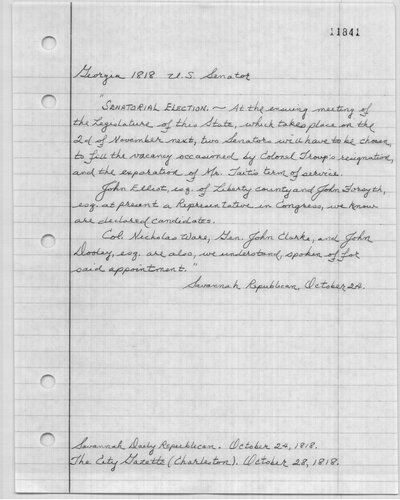 11841
Georgia 1818 U.S. Senator
"SENATORIAL ELECTION. ~ At the ensuing meeting of
the Legislature of this State, which takes place on the
2d of November next, two Senators will have to be chosen,
to fill the vacancy occasioned by Colonel Troup's resignation,
and the experation of Mr. Tait's term of service.
John Elliot, esq. of Liberty county and John Forsyth,
esq. at present a Representative in Congress, we know
are declared candidates.
Col. Nicholas Ware, Gen. John Clarke, and John
Dooley, esq. are also, we understand, spoken of for
said appointment."
Savannah Republican, October 24.
Savannah Daily Republican. October 24, 1818.
The City Gazette (Charleston). October 28, 1818.